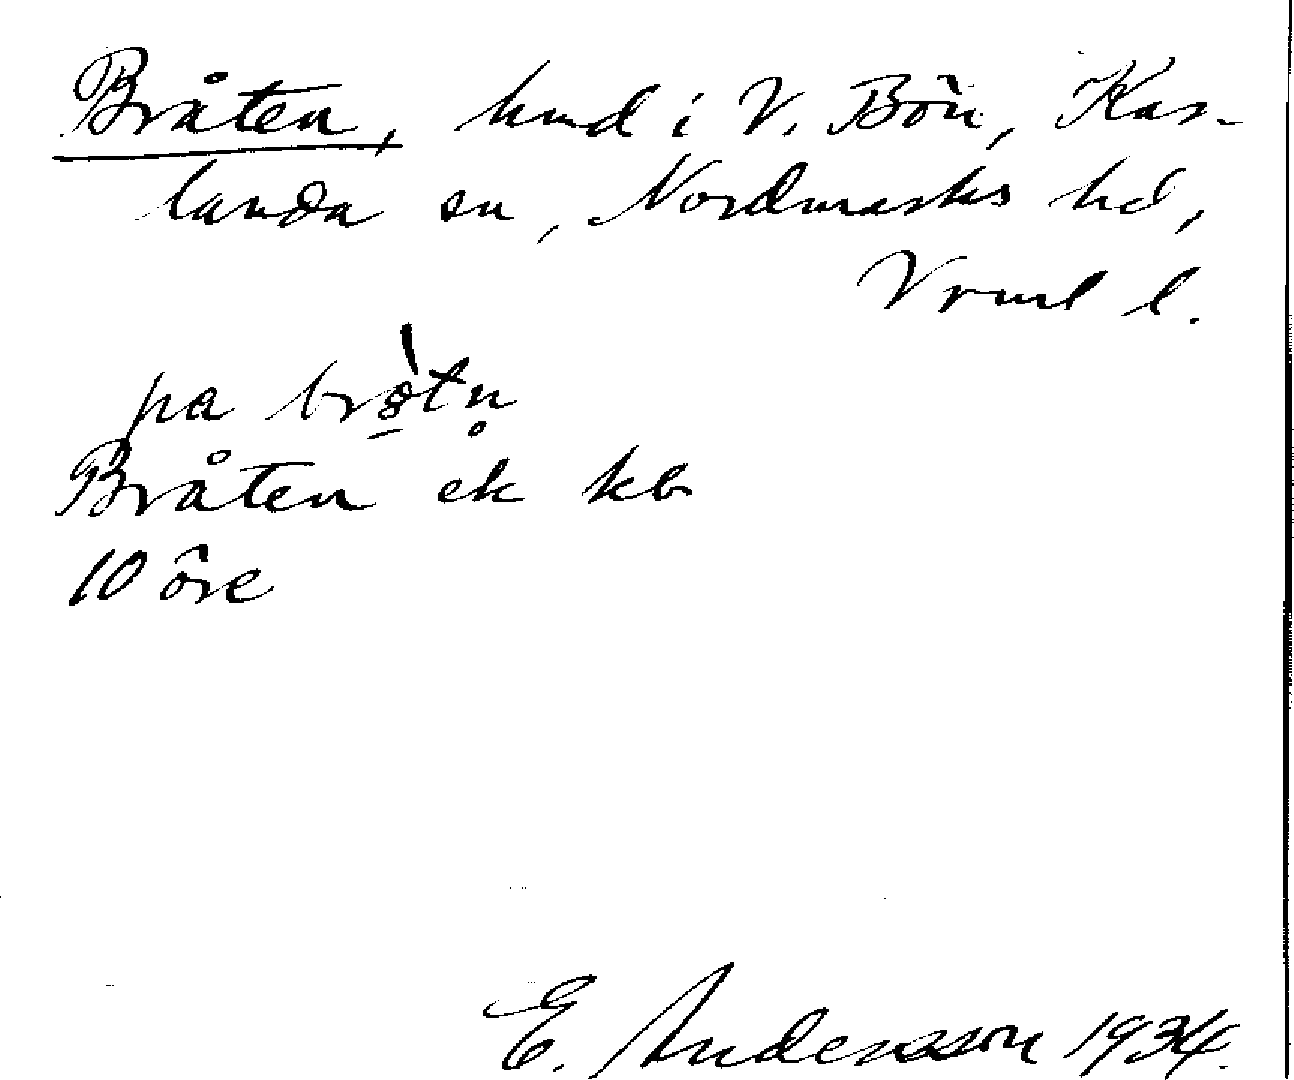 Bråten, hmd i V. Bön, Kar-
landa sn, Nordmarks hd,
Vrml l.
pa
Bråten ek kb
10 öre
E. Andersson 1934.